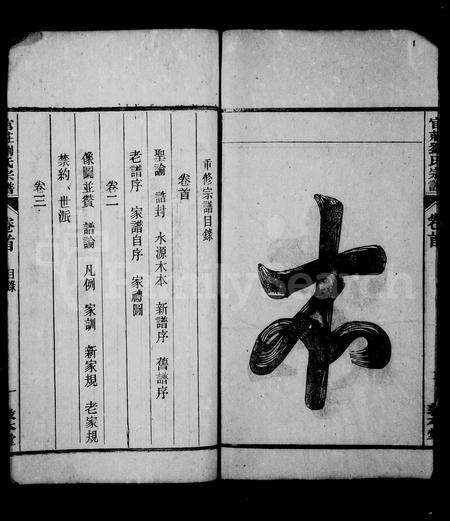 本
重修宗譜目錄
卷首
聖諭 誥封 水源木本 新譜序 舊譜序
老譜序 家譜自序 家禮圖
卷二
像圖並贊 譜論 凡例 家訓 新家規 老家規
禁約 世派
卷三
宗譜 卷首 目錄 一
氏宗譜 卷首
FamilySearch